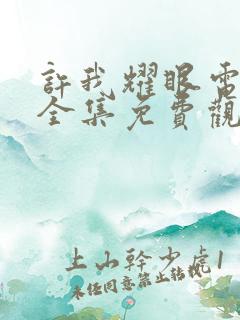 許我耀眼電
全集免費觀
上山幹少處1
未任同意禁止轉載